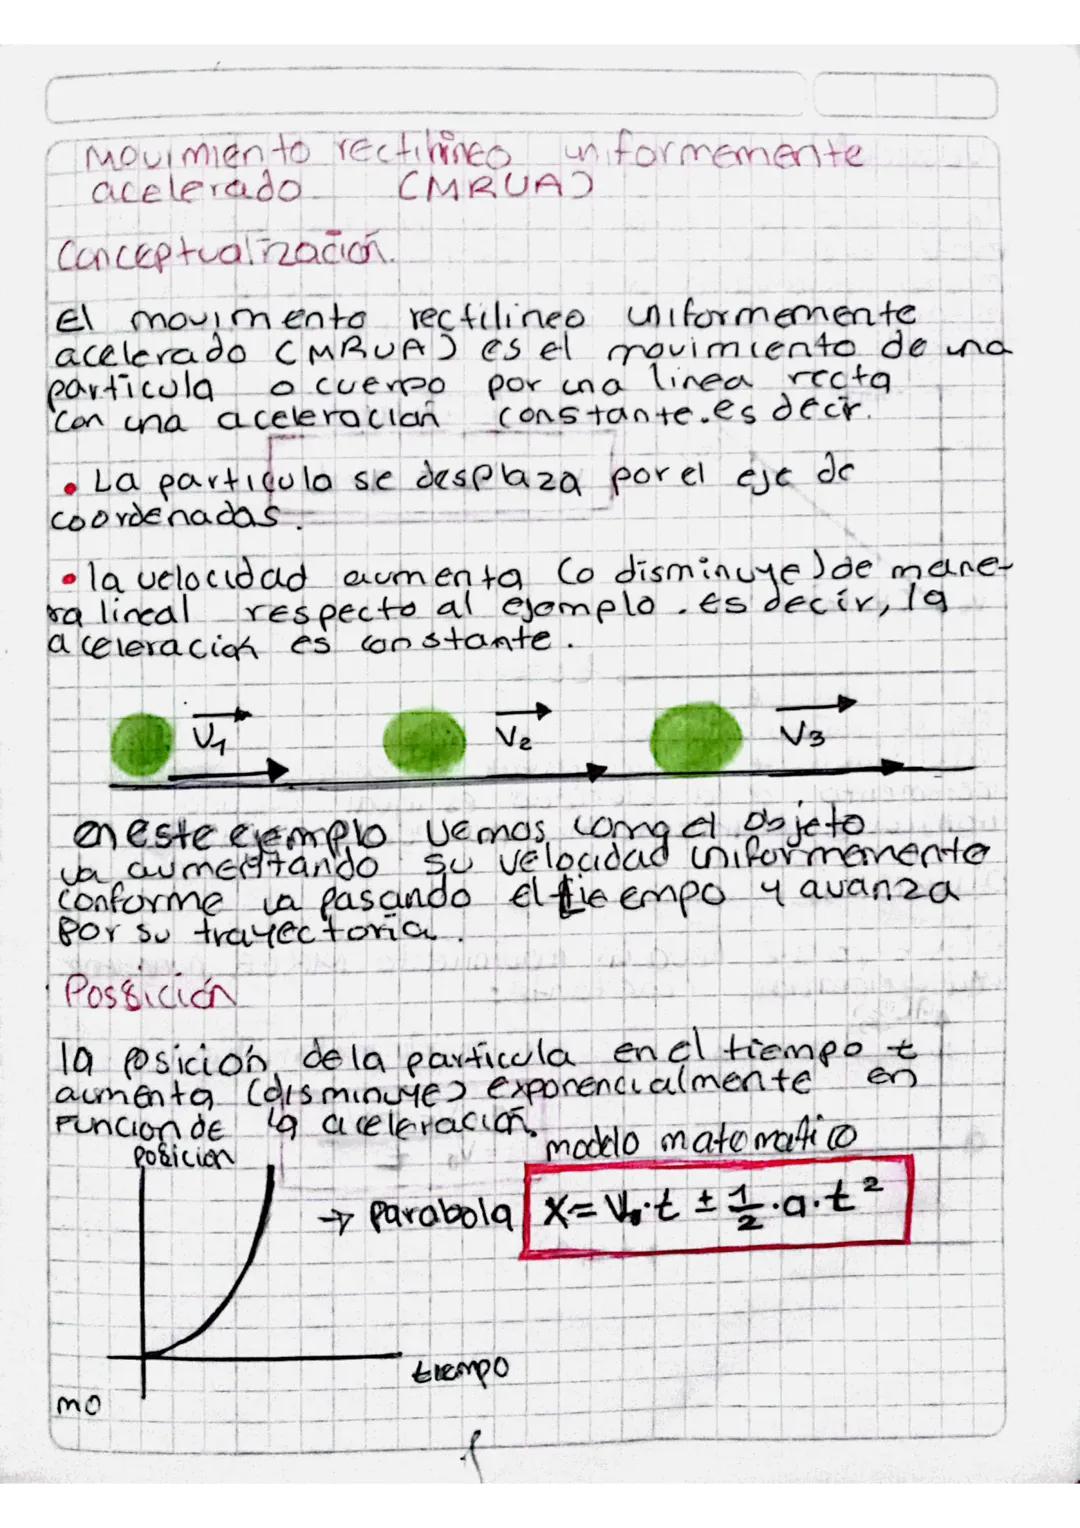 Movimiento rectilineo uniformemente
acelerado (MRUA)
Conceptualización.
El movimento rectilineo uniformemente
acelerado (MRUA) es el movimiento de una
particula o cuerpo por una linea recta
con una aceleración constante. es decir.
• La particula se desplaza por el eje de
coordenadas.
• la velocidad aumenta (o disminuye) de mane-
ra lineal respecto al ejemplo. es decir, la
aceleración es constante.
V1 V2 V3
en este ejemplo vemos como el objeto
va aumentando su velocidad uniformemente
conforme va pasando el tieempo y avanza
por su trayectoria.
Possición
la posición de la particula en el tiempo t
aumenta (disminuye) exponencialmente en
Funcion de la aceleración.
posicion
modelo matematico
→ parabola
X = V₀·t ± 1/2·a·t²
tiempo
mo